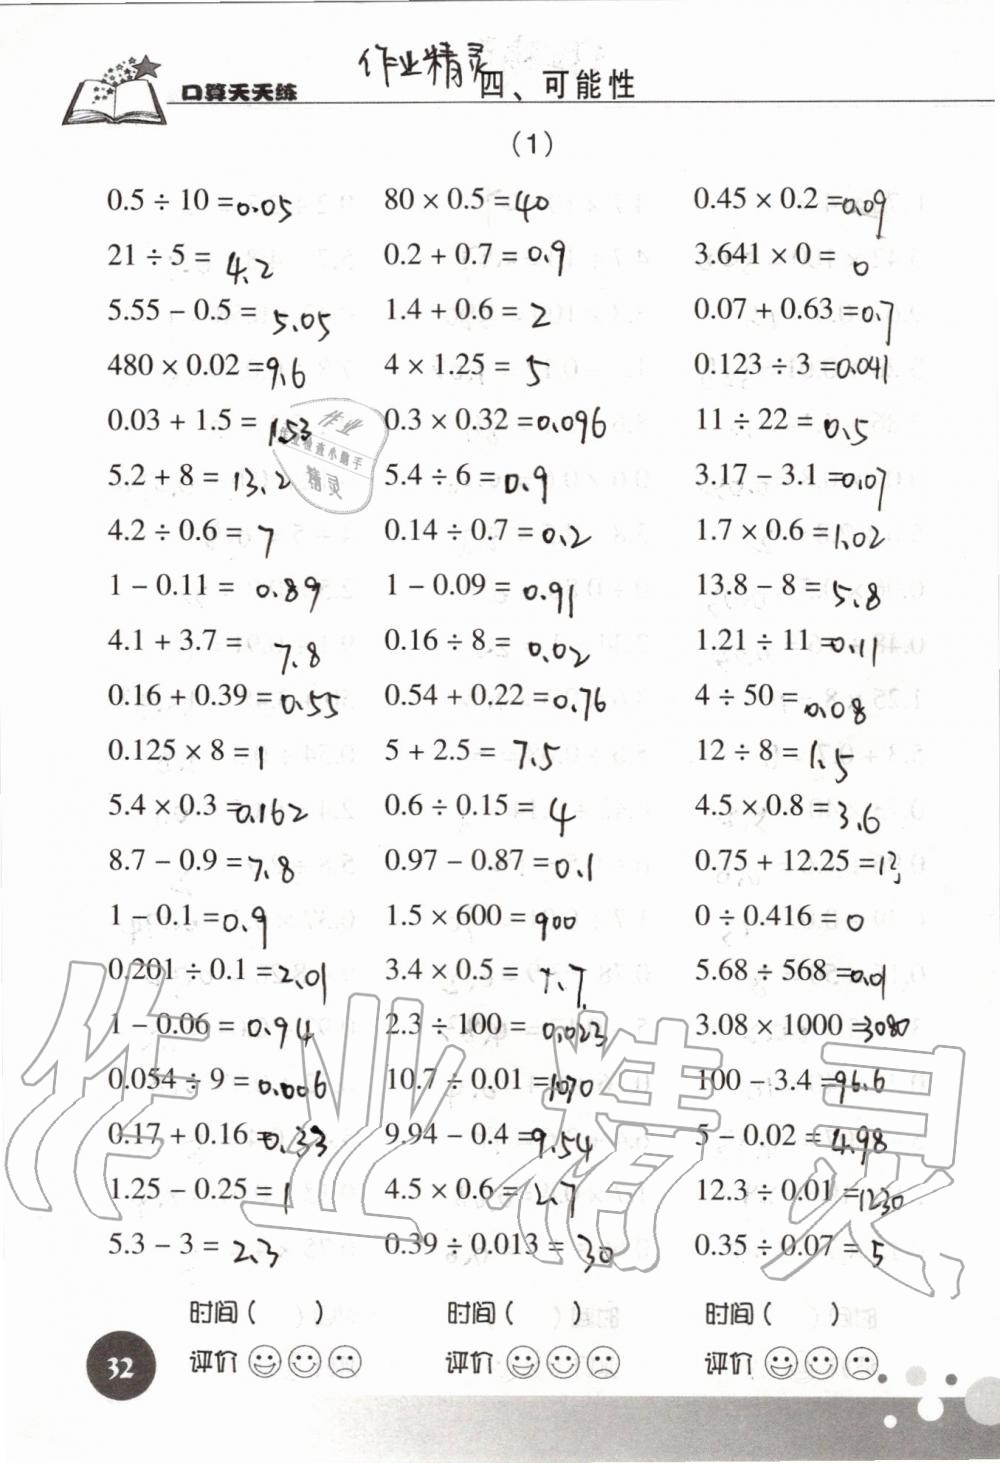 作业精灵
口算天天练
四、可能性
(1)
0.5 ÷ 10 = 0.05 80 × 0.5 = 40 0.45 × 0.2 = 0.09
21 ÷ 5 = 4.2 0.2 + 0.7 = 0.9 3.641 × 0 = 0
5.55 − 0.5 = 5.05 1.4 + 0.6 = 2 0.07 + 0.63 = 0.7
480 × 0.02 = 9.6 4 × 1.25 = 5 0.123 ÷ 3 = 0.041
0.03 + 1.5 = 1.53 0.3 × 0.32 = 0.096 11 ÷ 22 = 0.5
5.2 + 8 = 13.2 5.4 ÷ 6 = 0.9 3.17 − 3.1 = 0.07
4.2 ÷ 0.6 = 7 0.14 ÷ 0.7 = 0.2 1.7 × 0.6 = 1.02
1 − 0.11 = 0.89 1 − 0.09 = 0.91 13.8 − 8 = 5.8
4.1 + 3.7 = 7.8 0.16 ÷ 8 = 0.02 1.21 ÷ 11 = 0.11
0.16 + 0.39 = 0.55 0.54 + 0.22 = 0.76 4 ÷ 50 = 0.08
0.125 × 8 = 1 5 + 2.5 = 7.5 12 ÷ 8 = 1.5
5.4 × 0.3 = 0.162 0.6 ÷ 0.15 = 4 4.5 × 0.8 = 3.6
8.7 − 0.9 = 7.8 0.97 − 0.87 = 0.1 0.75 + 12.25 = 13
1 − 0.1 = 0.9 1.5 × 600 = 900 0 ÷ 0.416 = 0
0.201 ÷ 0.1 = 2.01 3.4 × 0.5 = 1.7 5.68 ÷ 568 = 0.01
1 − 0.06 = 0.94 2.3 ÷ 100 = 0.023 3.08 × 1000 = 3080
0.054 ÷ 9 = 0.006 10.7 ÷ 0.01 = 1070 100 − 3.4 = 96.6
0.17 + 0.16 = 0.33 9.94 − 0.4 = 9.54 5 − 0.02 = 4.98
1.25 − 0.25 = 1 4.5 × 0.6 = 2.7 12.3 ÷ 0.01 = 1230
5.3 − 3 = 2.3 0.39 ÷ 0.013 = 30 0.35 ÷ 0.07 = 5
时间( ) 时间( ) 时间( )
评价 评价 评价
32
作业
作业检查小助手
精灵
作业精灵